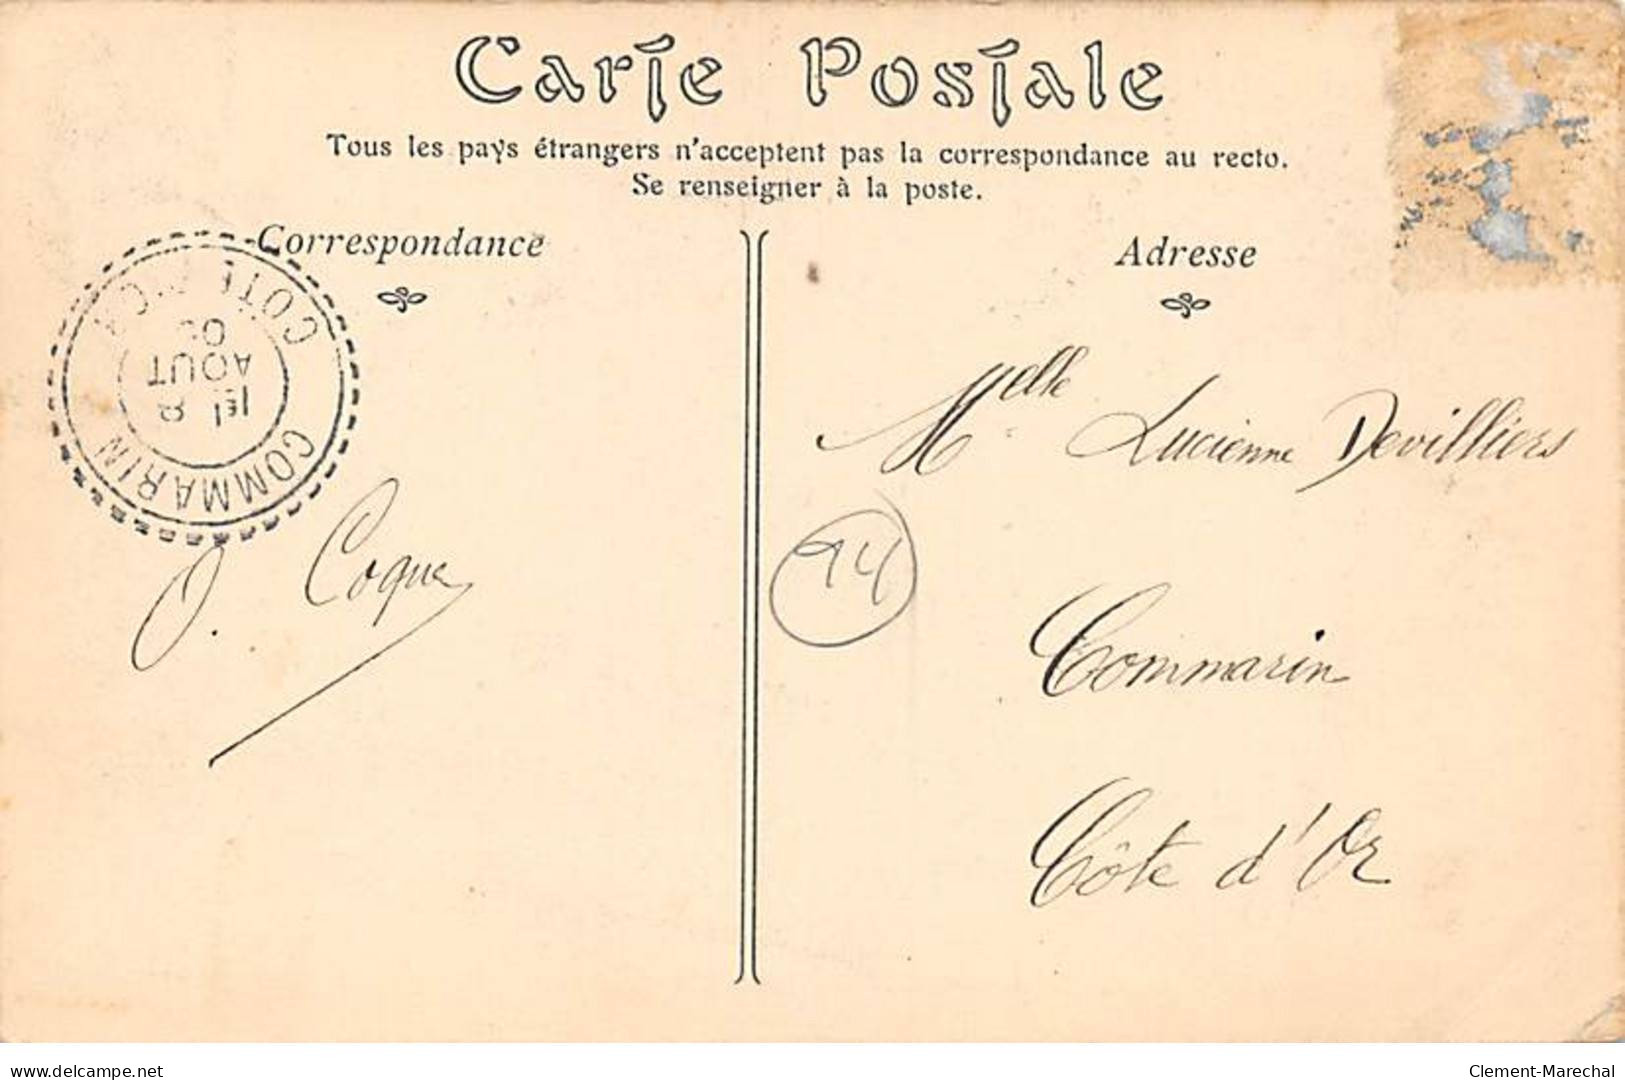 Carte Postale
Tous les pays étrangers n'acceptent pas la correspondance au recto.
Se renseigner à la poste.
Correspondance
Adresse
COMMARIN
1E 8
AOUT
COTE D'OR
Melle Lucienne Devilliers
Commarin
Côte d'Or
O. Coque
14
www.delcampe.net
Clement-Marechal